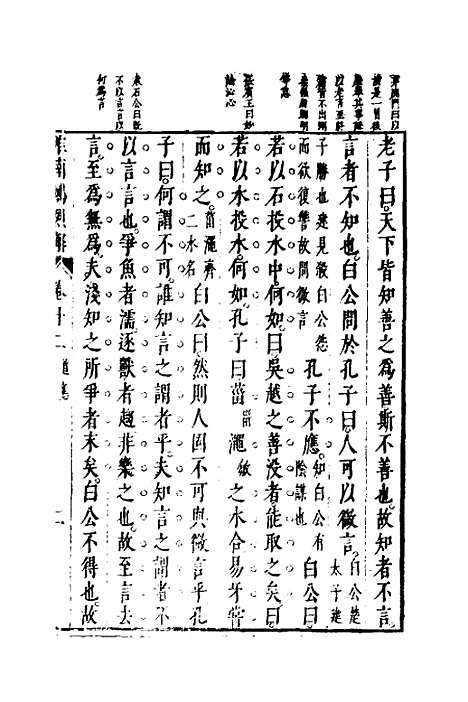 張賓王曰妙
論沁心
袁石公曰既
不以言言以
何爲言
老子曰天下皆知善之爲善斯不善也故知者不言
言者不知也白公問於孔子曰人可以微言白公楚太子建
子勝也建見殺白公怨而欲復讐故問微言孔子不應知白公有陰謀也白公曰
若以石投水中何如曰吳越之善沒者能取之矣曰
若以水投水何如孔子曰菑澠之水合易牙嘗
而知之菑澠齊二水名白公曰然則人固不可與微言乎孔
子曰何謂不可誰知言之謂者乎夫知言之謂者不
以言言也爭魚者濡逐獸者趨非樂之也故至言去
言至爲無爲夫淺知之所爭者末矣白公不得也故
淮南鴻烈解 卷十二 道應 二